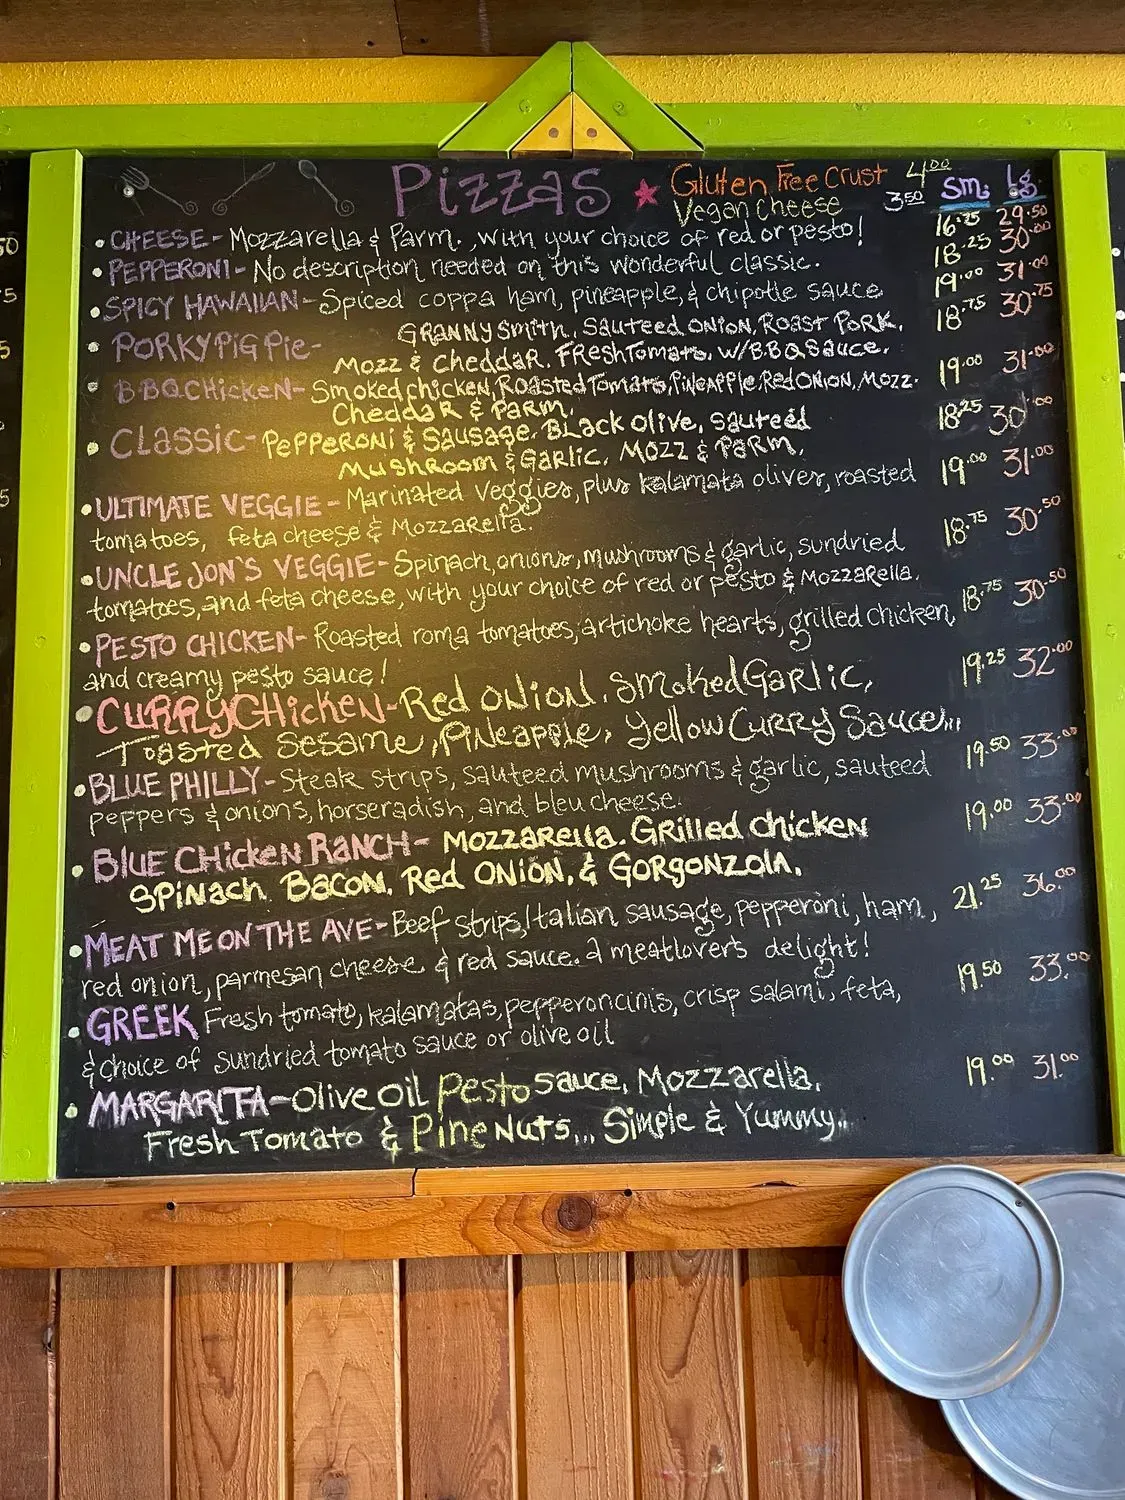 Pizzas
Gluten Free Crust 4.00
Vegan Cheese 3.50
Sm. Lg.
• CHEESE - Mozzarella & Parm., with your choice of red or pesto! 16.75 29.50
• PEPPERONI - No description needed on this wonderful classic. 18.25 30.00
• SPICY HAWAIIAN - Spiced coppa ham, pineapple, & chipotle sauce 19.00 31.00
• PORKY PIG Pie - GRANNY Smith, Sauteed ONION, ROAST PORK, 18.75 30.75
Mozz & CheddaR. FRESH Tomato, w/ B.B.Q Sauce.
• B.B.Q CHICKEN - Smoked chicken, Roasted Tomato, PiNeAPPle, Red ONION, Mozz. 19.00 31.00
CheddaR & PaRM.
• CLASSIC - PePPeRONi & Sausage. BLacK olive, sauteed 18.25 30.00
MushRooM & GaRLic, Mozz & PaRM.
• ULTIMATE VEGGIE - Marinated veggies, plus kalamata olives, roasted 19.00 31.00
tomatoes, feta cheese & MozzaRella.
• UNCLE JON'S VEGGIE - Spinach, onions, mushrooms & garlic, sundried 18.75 30.50
tomatoes, and feta cheese, with your choice of red or pesto & MozzaRella.
• PESTO CHICKEN - Roasted roma tomatoes, artichoke hearts, grilled chicken, 18.75 30.50
and creamy pesto sauce!
• CURRY CHicKeN - Red ONION, SmoKed GaRLic, 19.25 32.00
Toasted Sesame, PiNeapple, Yellow CURRY Sauce...
• BLUE PHILLY - Steak strips, sauteed mushrooms & garlic, sauteed 19.50 33.00
peppers & onions, horseradish, and bleu cheese.
• BLUE CHicKeN RANCH - MozzaRella. GRilled chicKeN 19.00 33.00
SPiNach, BacoN, Red ONION, & GORGONZOLA.
• MEAT ME ON THE AVE - Beef strips, Italian sausage, pepperoni, ham, 21.25 36.00
red onion, parmesan cheese & red sauce. a meatlover's delight!
• GREEK Fresh tomato, kalamatas, pepperoncinis, crisp salami, feta, 19.50 33.00
& choice of sundried tomato sauce or olive oil
• MARGARITA - Olive Oil Pesto sauce, Mozzarella, 19.00 31.00
Fresh Tomato & Pine Nuts... Simple & Yummy..